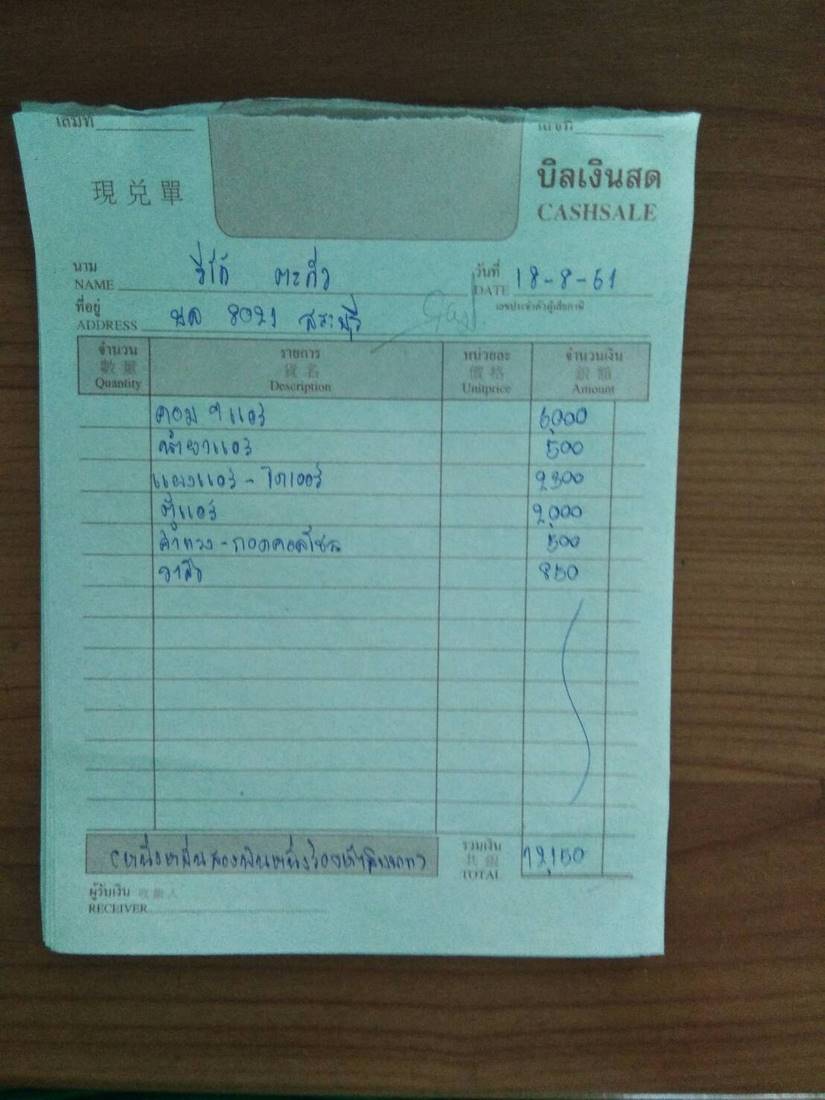 เล่มที่ เลขที่
現兑單 บิลเงินสด
CASHSALE
นาม วีโก้ ตะกั่ว วันที่ 18-8-61
NAME DATE
ที่อยู่ บล 8021 สระบุรี เลขประจำตัวผู้เสียภาษี
ADDRESS
จำนวน รายการ หน่วยละ จำนวนเงิน
數量 貨名 價格 銀額
Quantity Description Unitprice Amount
คอมฯแอร์ 6,000
น้ำยาแอร์ 500
แผงแอร์ - ไดเออร์ 2300
ตู้แอร์ 2,000
ค่าแรง - ถอดคอลโซล 500
วาล์ว 850
รวมเงิน
(หนึ่งหมื่นสองพันหนึ่งร้อยห้าสิบบาท) 12,150
TOTAL
ผู้รับเงิน 收銀人
RECEIVER